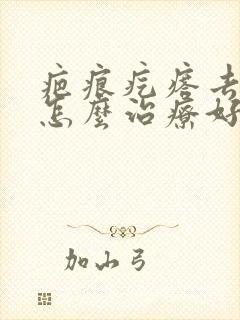 疤痕疙瘩去
怎麼治療好
加山弓